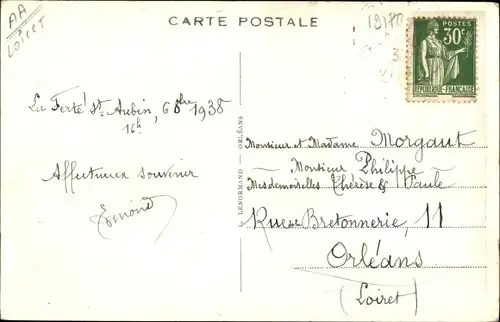 AA
LOIRET
CARTE POSTALE
POSTES
30c
RÉPUBLIQUE-FRANÇAISE
La Ferté St. Aubin, 6 8bre 1938
16h
Affectueux souvenir
L. LENORMAND - ORLÉANS
Monsieur et Madame Morgaut
Monsieur Philippe
Mesdemoiselles Thérèse & Paule
Rue Bretonnerie, 11
Orléans
(Loiret)